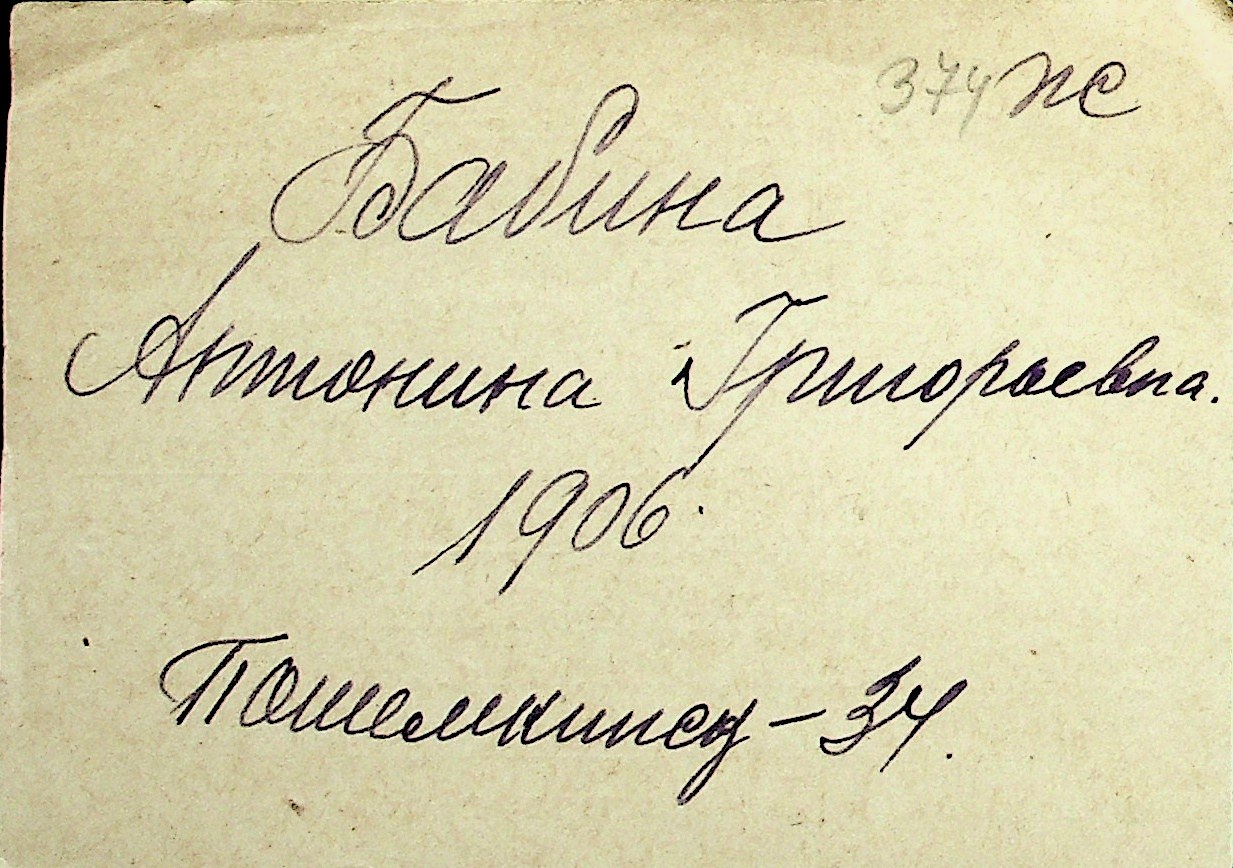 374 пс
Бабина
Антонина Григорьевна.
1906.
Потемкинск – 34.